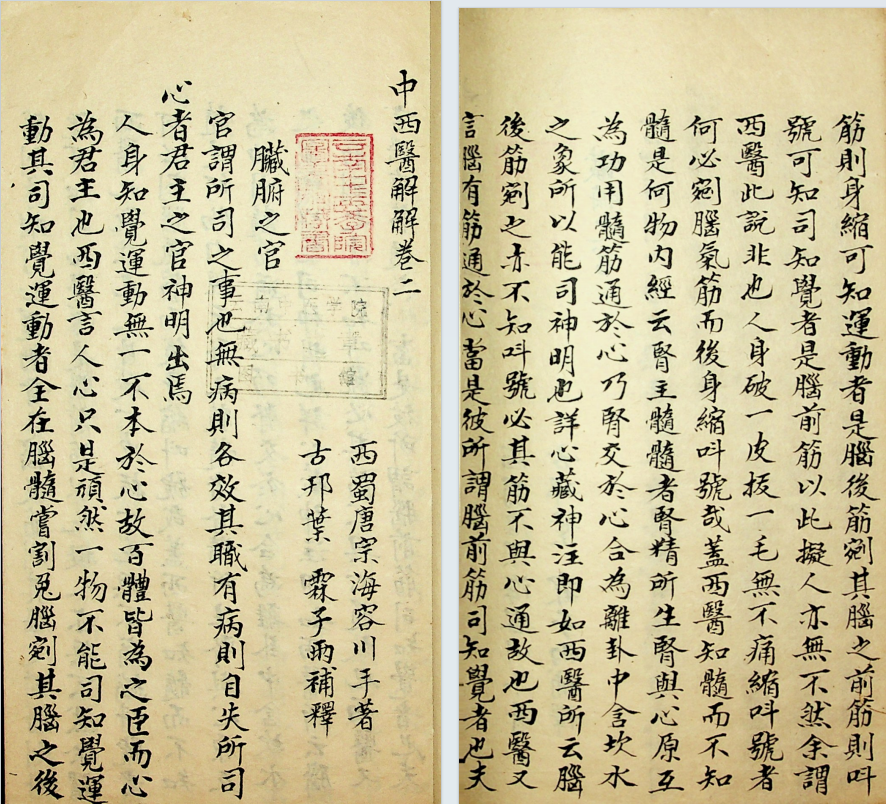 中西醫解解卷二
西蜀唐宗海容川手著
古邗葉霖子雨補釋
臟腑之官
官謂所司之事也無病則各效其職有病則自失所司
心者君主之官神明出焉
人身知覺運動無一不本於心故百體皆為之臣而心
為君主也西醫言人心只是頑然一物不能司知覺運
動其司知覺運動者全在腦髓嘗割兔腦剜其腦之後
筋則身縮可知運動者是腦後筋剜其腦之前筋則叫
號可知司知覺者是腦前筋以此擬人亦無不然余謂
西醫此說非也人身破一皮拔一毛無不痛縮叫號者
何必剜腦氣筋而後身縮叫號哉蓋西醫知髓而不知
髓是何物內經云腎主髓髓者腎精所生腎與心原互
為功用髓筋通於心乃腎交於心合為離卦中含坎水
之象所以能司神明也詳心藏神注即如西醫所云腦
後筋剜之亦不知叫號必其筋不與心通故也西醫又
言腦有筋通於心當是彼所謂腦前筋司知覺者也夫